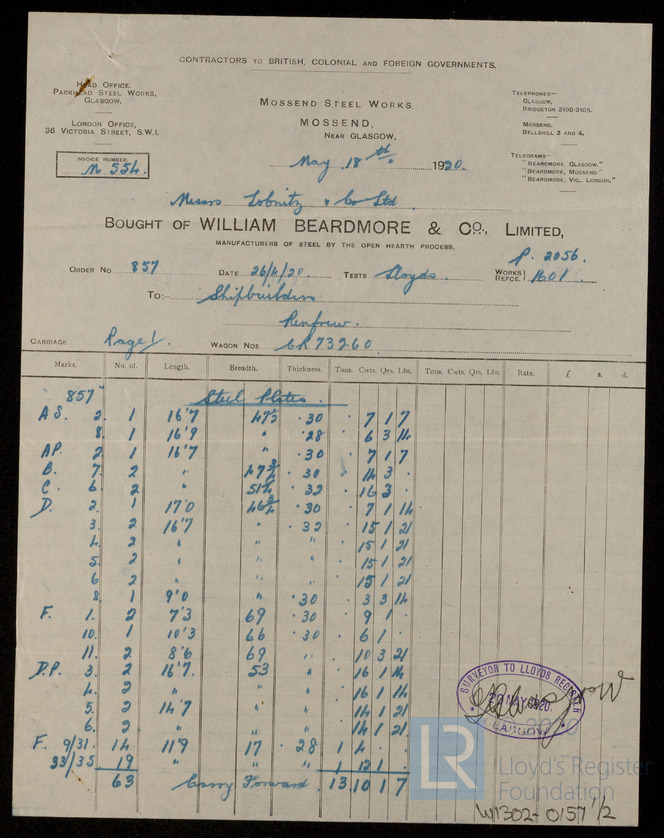 CONTRACTORS TO BRITISH, COLONIAL AND FOREIGN GOVERNMENTS.
HEAD OFFICE.
PARKHEAD STEEL WORKS,
GLASGOW.
LONDON OFFICE,
36 VICTORIA STREET, S.W.1.
INVOICE NUMBER.
M 554.
MOSSEND STEEL WORKS,
MOSSEND,
NEAR GLASGOW,
May 18th 1920.
TELEPHONES—
GLASGOW,
BRIDGETON 3100-3105.
MOSSEND,
BELLSHILL 3 AND 4.
TELEGRAMS—
"BEARDMORE GLASGOW."
"BEARDMORE, MOSSEND."
"BEARDMORE, VIC., LONDON."
Messrs Lobnitz & Co Ltd
BOUGHT OF WILLIAM BEARDMORE & CO., LIMITED,
MANUFACTURERS OF STEEL BY THE OPEN HEARTH PROCESS.
P. 2056.
ORDER NO 857 DATE 26/4/20. TESTS Lloyds WORKS REFCE. 1601
TO:— Shipbuilders
Renfrew.
CARRIAGE Page 1. WAGON NOS. CR 73260
Marks. No. of. Length. Breadth. Thickness. Tons. Cwts. Qrs. Lbs. Tons. Cwts. Qrs. Lbs. Rate. £ s. d.
857 Steel Plates.
A S. 2. 1 16'7 47½ .30 . 7 1 7
8. 1 16'9 " .28 . 6 3 14
AP. 2. 1 16'7 " .30 . 7 1 7
B. 7. 2 " 47¾ .30 . 14 3 .
C. 6. 2 " 51¼ .32 . 16 3 .
D. 2. 1 17'0 46¾ .30 . 7 1 14
3. 2 16'7 " .32 . 15 1 21
4. 2 " " " . 15 1 21
5. 2 " " " . 15 1 21
6. 2 " " " . 15 1 21
8. 1 9'0 " .30 . 3 3 14
F. 1. 2 7'3 69 .30 . 9 1 .
10. 1 10'3 66 .30 . 6 1 .
11. 2 8'6 69 " . 10 3 21
D.P. 3. 2 16'7. 53 " . 16 1 14
4. 2 " " " . 16 1 14
5. 2 14'7 " " . 14 1 21
6. 2 " " " . 14 1 21
F. 9/31. 14 11'9 17 .28 1 4 . .
33/35 19 " " " 1 12 1 .
63 Carry Forward. 13 10 1 7
SURVEYOR TO LLOYDS REGISTER
MAY 1920.
GLASGOW
LR
Lloyd's Register
Foundation
W1302-0157 1/2